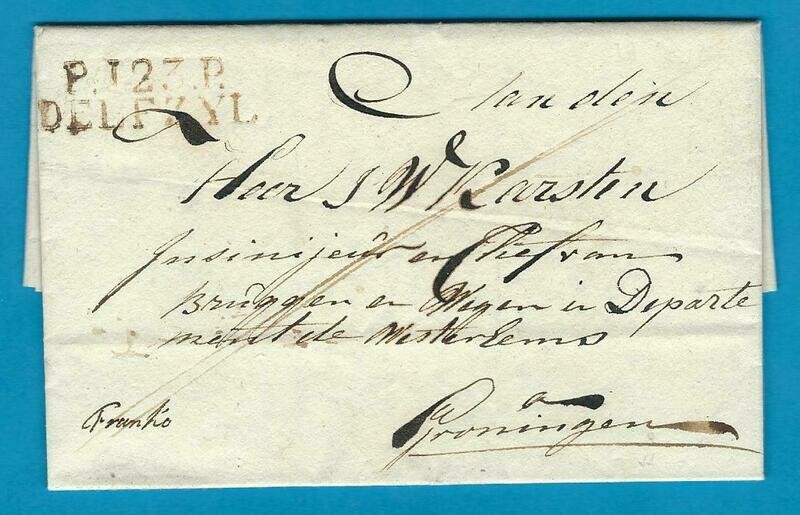 P.123.P.
DELFZYL
Van den
Heer J W Karsten
Insinijeur en Chef van
Bruggen en Wegen in Departe
ment de Wester Eems
a
Groningen
Franko